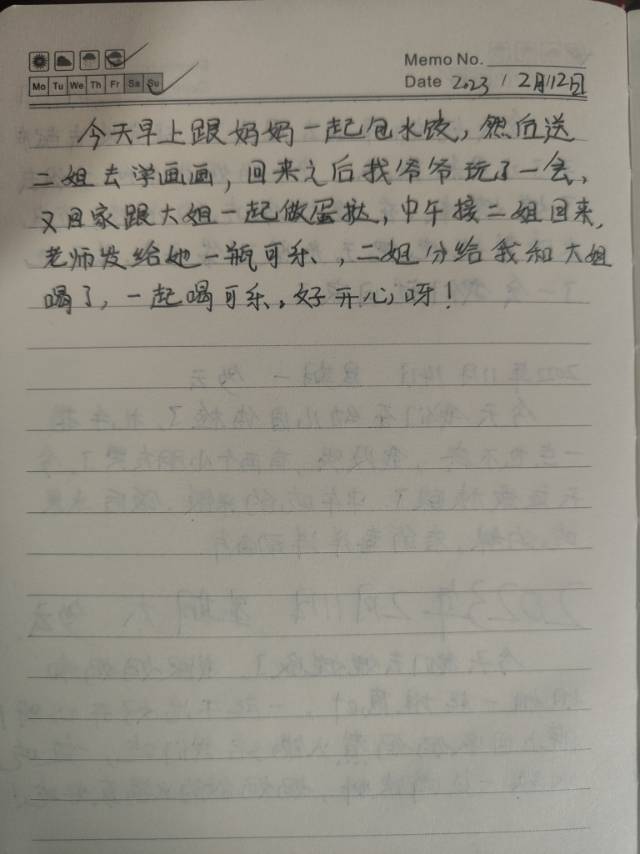 Memo No.
Mo Tu We Th Fr Sa Su
Date 2023 / 2月12日
今天早上跟妈妈一起包水饺，然后送
二姐去学画画，回来之后找爷爷玩了一会，
又回家跟大姐一起做蛋挞，中午接二姐回来，
老师发给她一瓶可乐，二姐分给我和大姐
喝了，一起喝可乐。好开心呀！